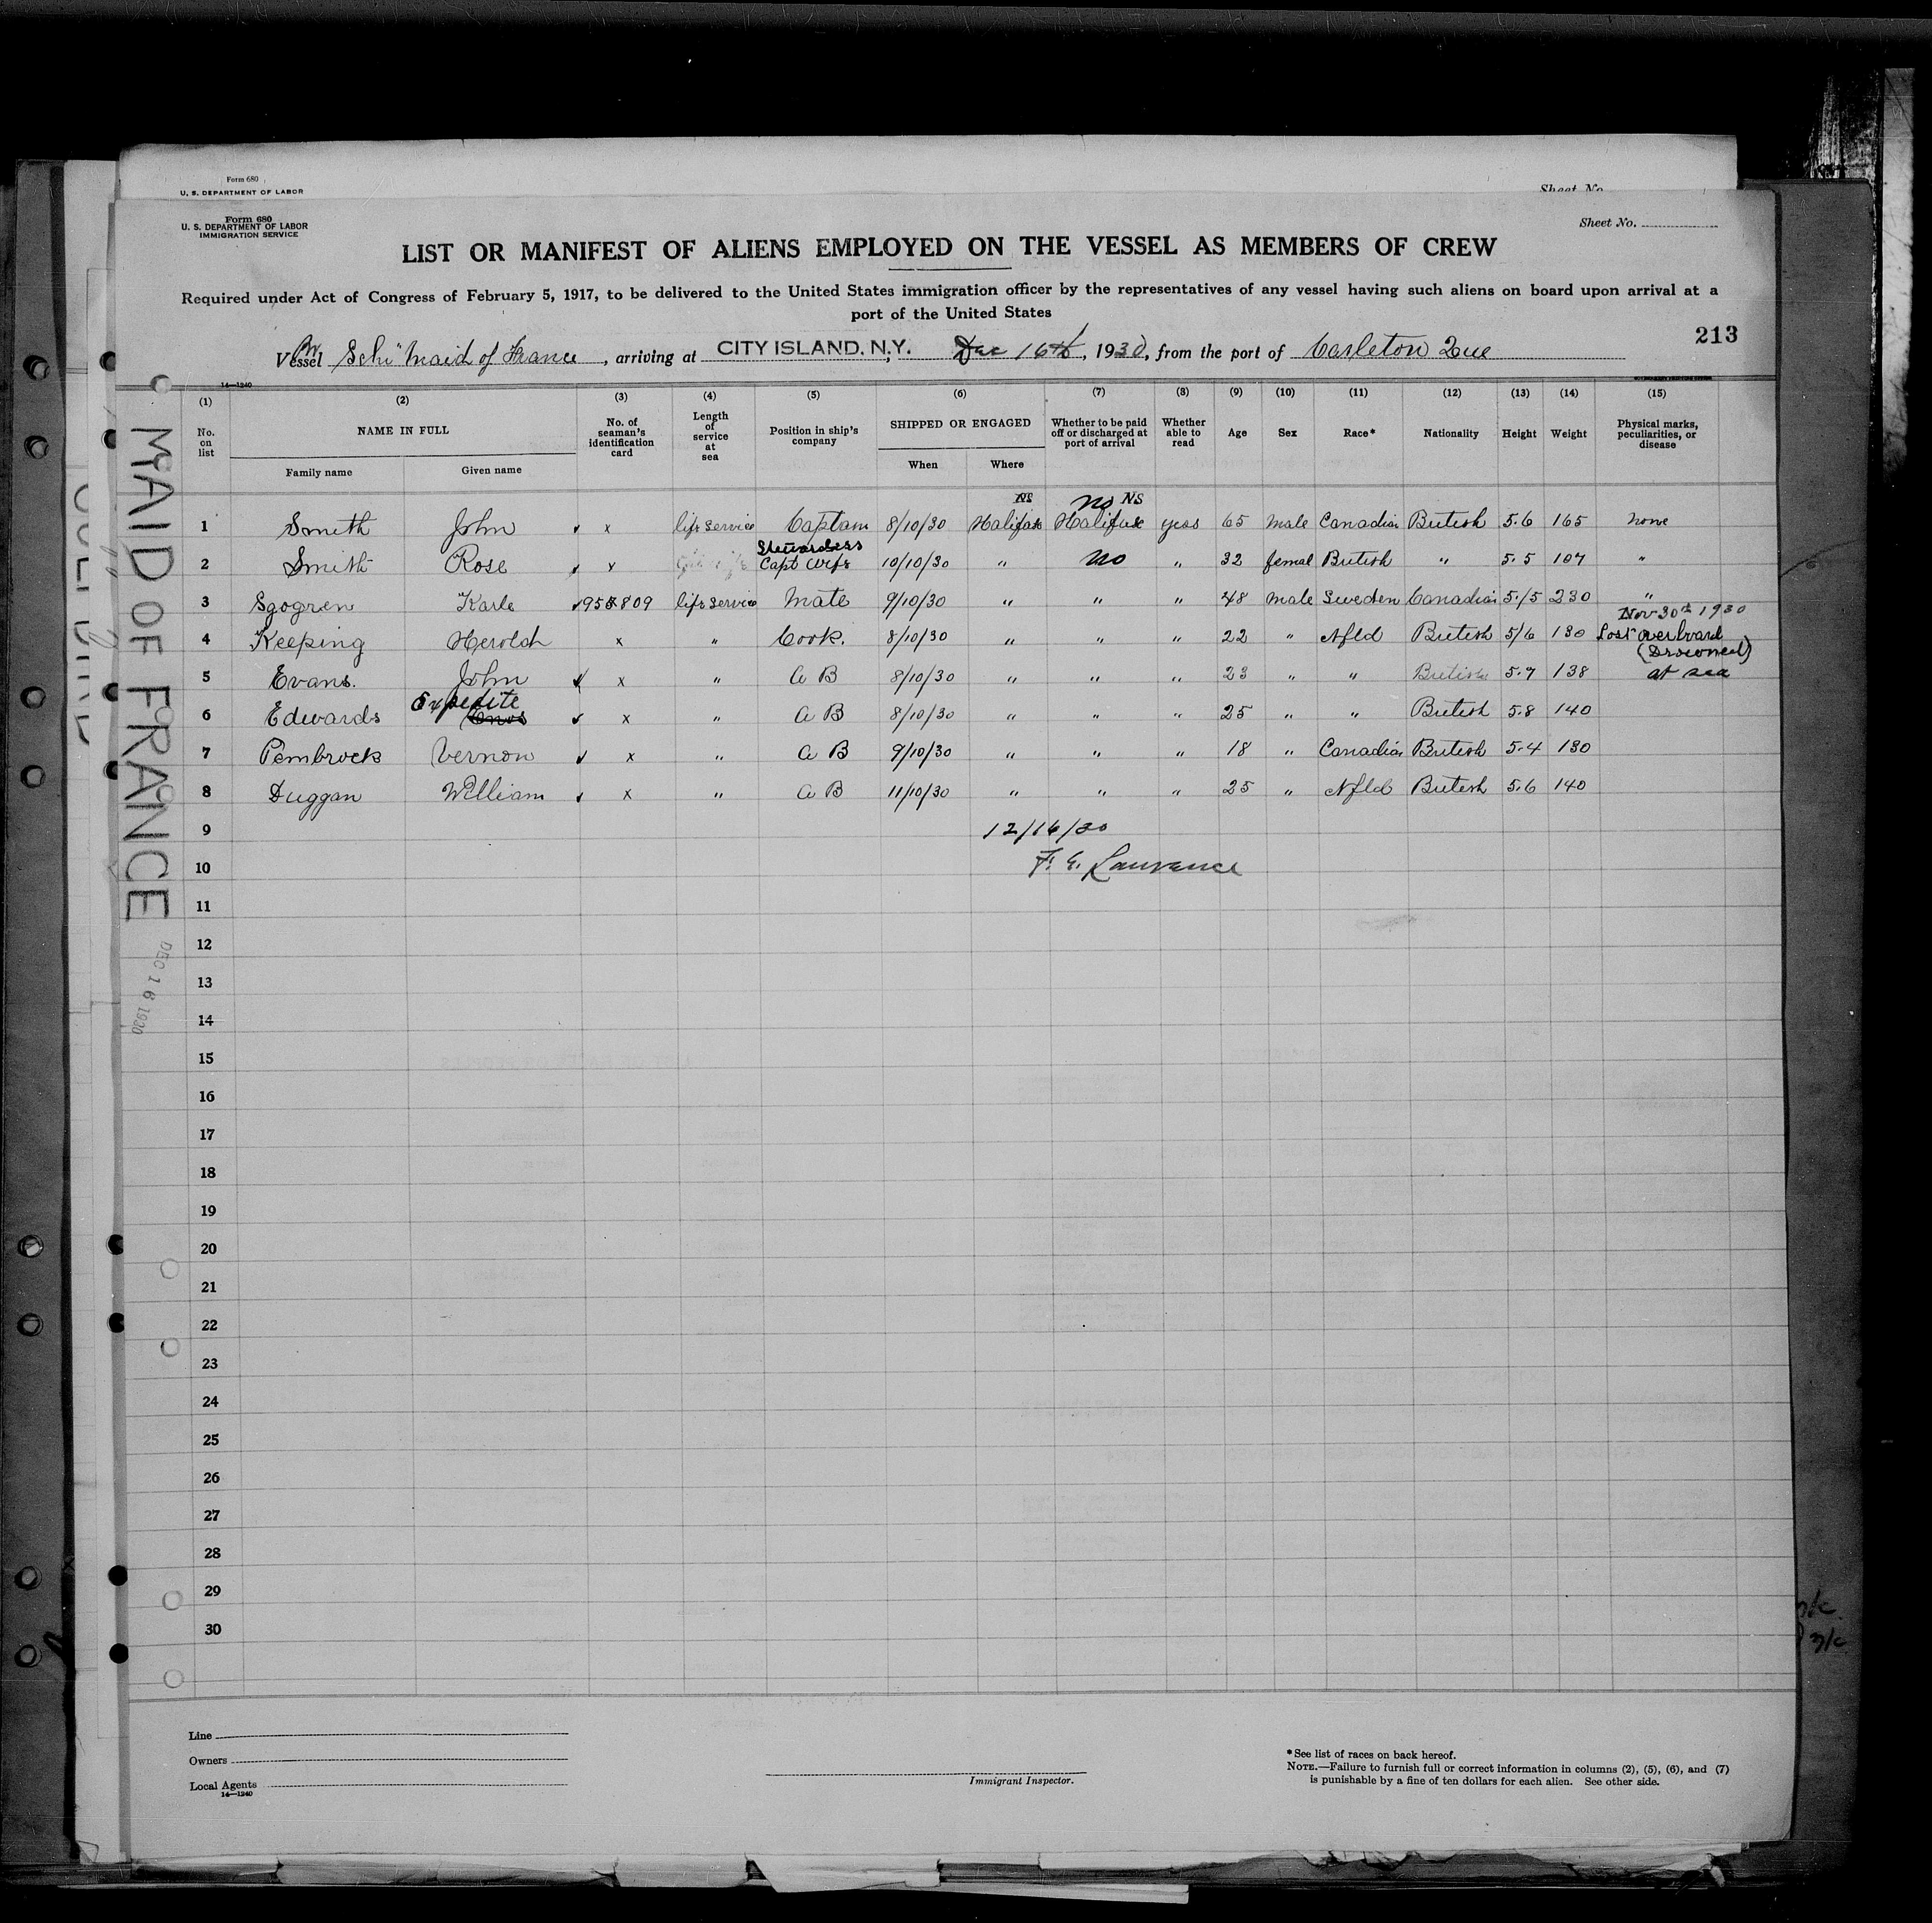 Form 680
U. S. DEPARTMENT OF LABOR
Sheet No.
Form 680
U. S. DEPARTMENT OF LABOR
IMMIGRATION SERVICE
Sheet No.
LIST OR MANIFEST OF ALIENS EMPLOYED ON THE VESSEL AS MEMBERS OF CREW
Required under Act of Congress of February 5, 1917, to be delivered to the United States immigration officer by the representatives of any vessel having such aliens on board upon arrival at a
port of the United States
213
Vessel Br Schr "Maid of France, arriving at CITY ISLAND, N.Y., Dec 16th, 1930, from the port of Carleton Que
14—1240
(1) (2) (3) (4) (5) (6) (7) (8) (9) (10) (11) (12) (13) (14) (15)
No. on list NAME IN FULL Family name Given name No. of seaman's identification card Length of service at sea Position in ship's company SHIPPED OR ENGAGED When Where Whether to be paid off or discharged at port of arrival Whether able to read Age Sex Race* Nationality Height Weight Physical marks, peculiarities, or disease
NS no NS
1 Smith John ✓ x life service Captain 8/10/30 Halifax Halifax yess 65 male Canadian British 5.6 165 none
Stewardess
2 Smith Rose ✓ x Capt wife 10/10/30 " no " 32 femal British " 5.5 107 "
3 Sgogren Karle ✓ 958809 life service Mate 9/10/30 " " " 48 male Sweden Canadian 5./5 230 "
Nov 30th 1930
4 Keeping Herold x " Cook. 8/10/30 " " " 22 " Nfld British 5/6 130 Lost overboard
(Drowned)
5 Evans. John ✓ x " A B 8/10/30 " " " 23 " " British 5.7 138 at sea
Expedite
6 Edwards Enos ✓ x " A B 8/10/30 " " " 25 " " British 5.8 140
7 Pembrock Vernon ✓ x " A B 9/10/30 " " " 18 " Canadian British 5.4 130
8 Duggan William ✓ x " A B 11/10/30 " " " 25 " Nfld British 5.6 140
9 12/16/30
10 F. E. Lawrence
11
12
13
14
15
16
17
18
19
20
21
22
23
24
25
26
27
28
29
30
MAID OF FRANCE
DEC 16 1930
n/c.
n/c
Line
Owners
Local Agents
14—1240
Immigrant Inspector.
*See list of races on back hereof.
NOTE.—Failure to furnish full or correct information in columns (2), (5), (6), and (7)
is punishable by a fine of ten dollars for each alien. See other side.